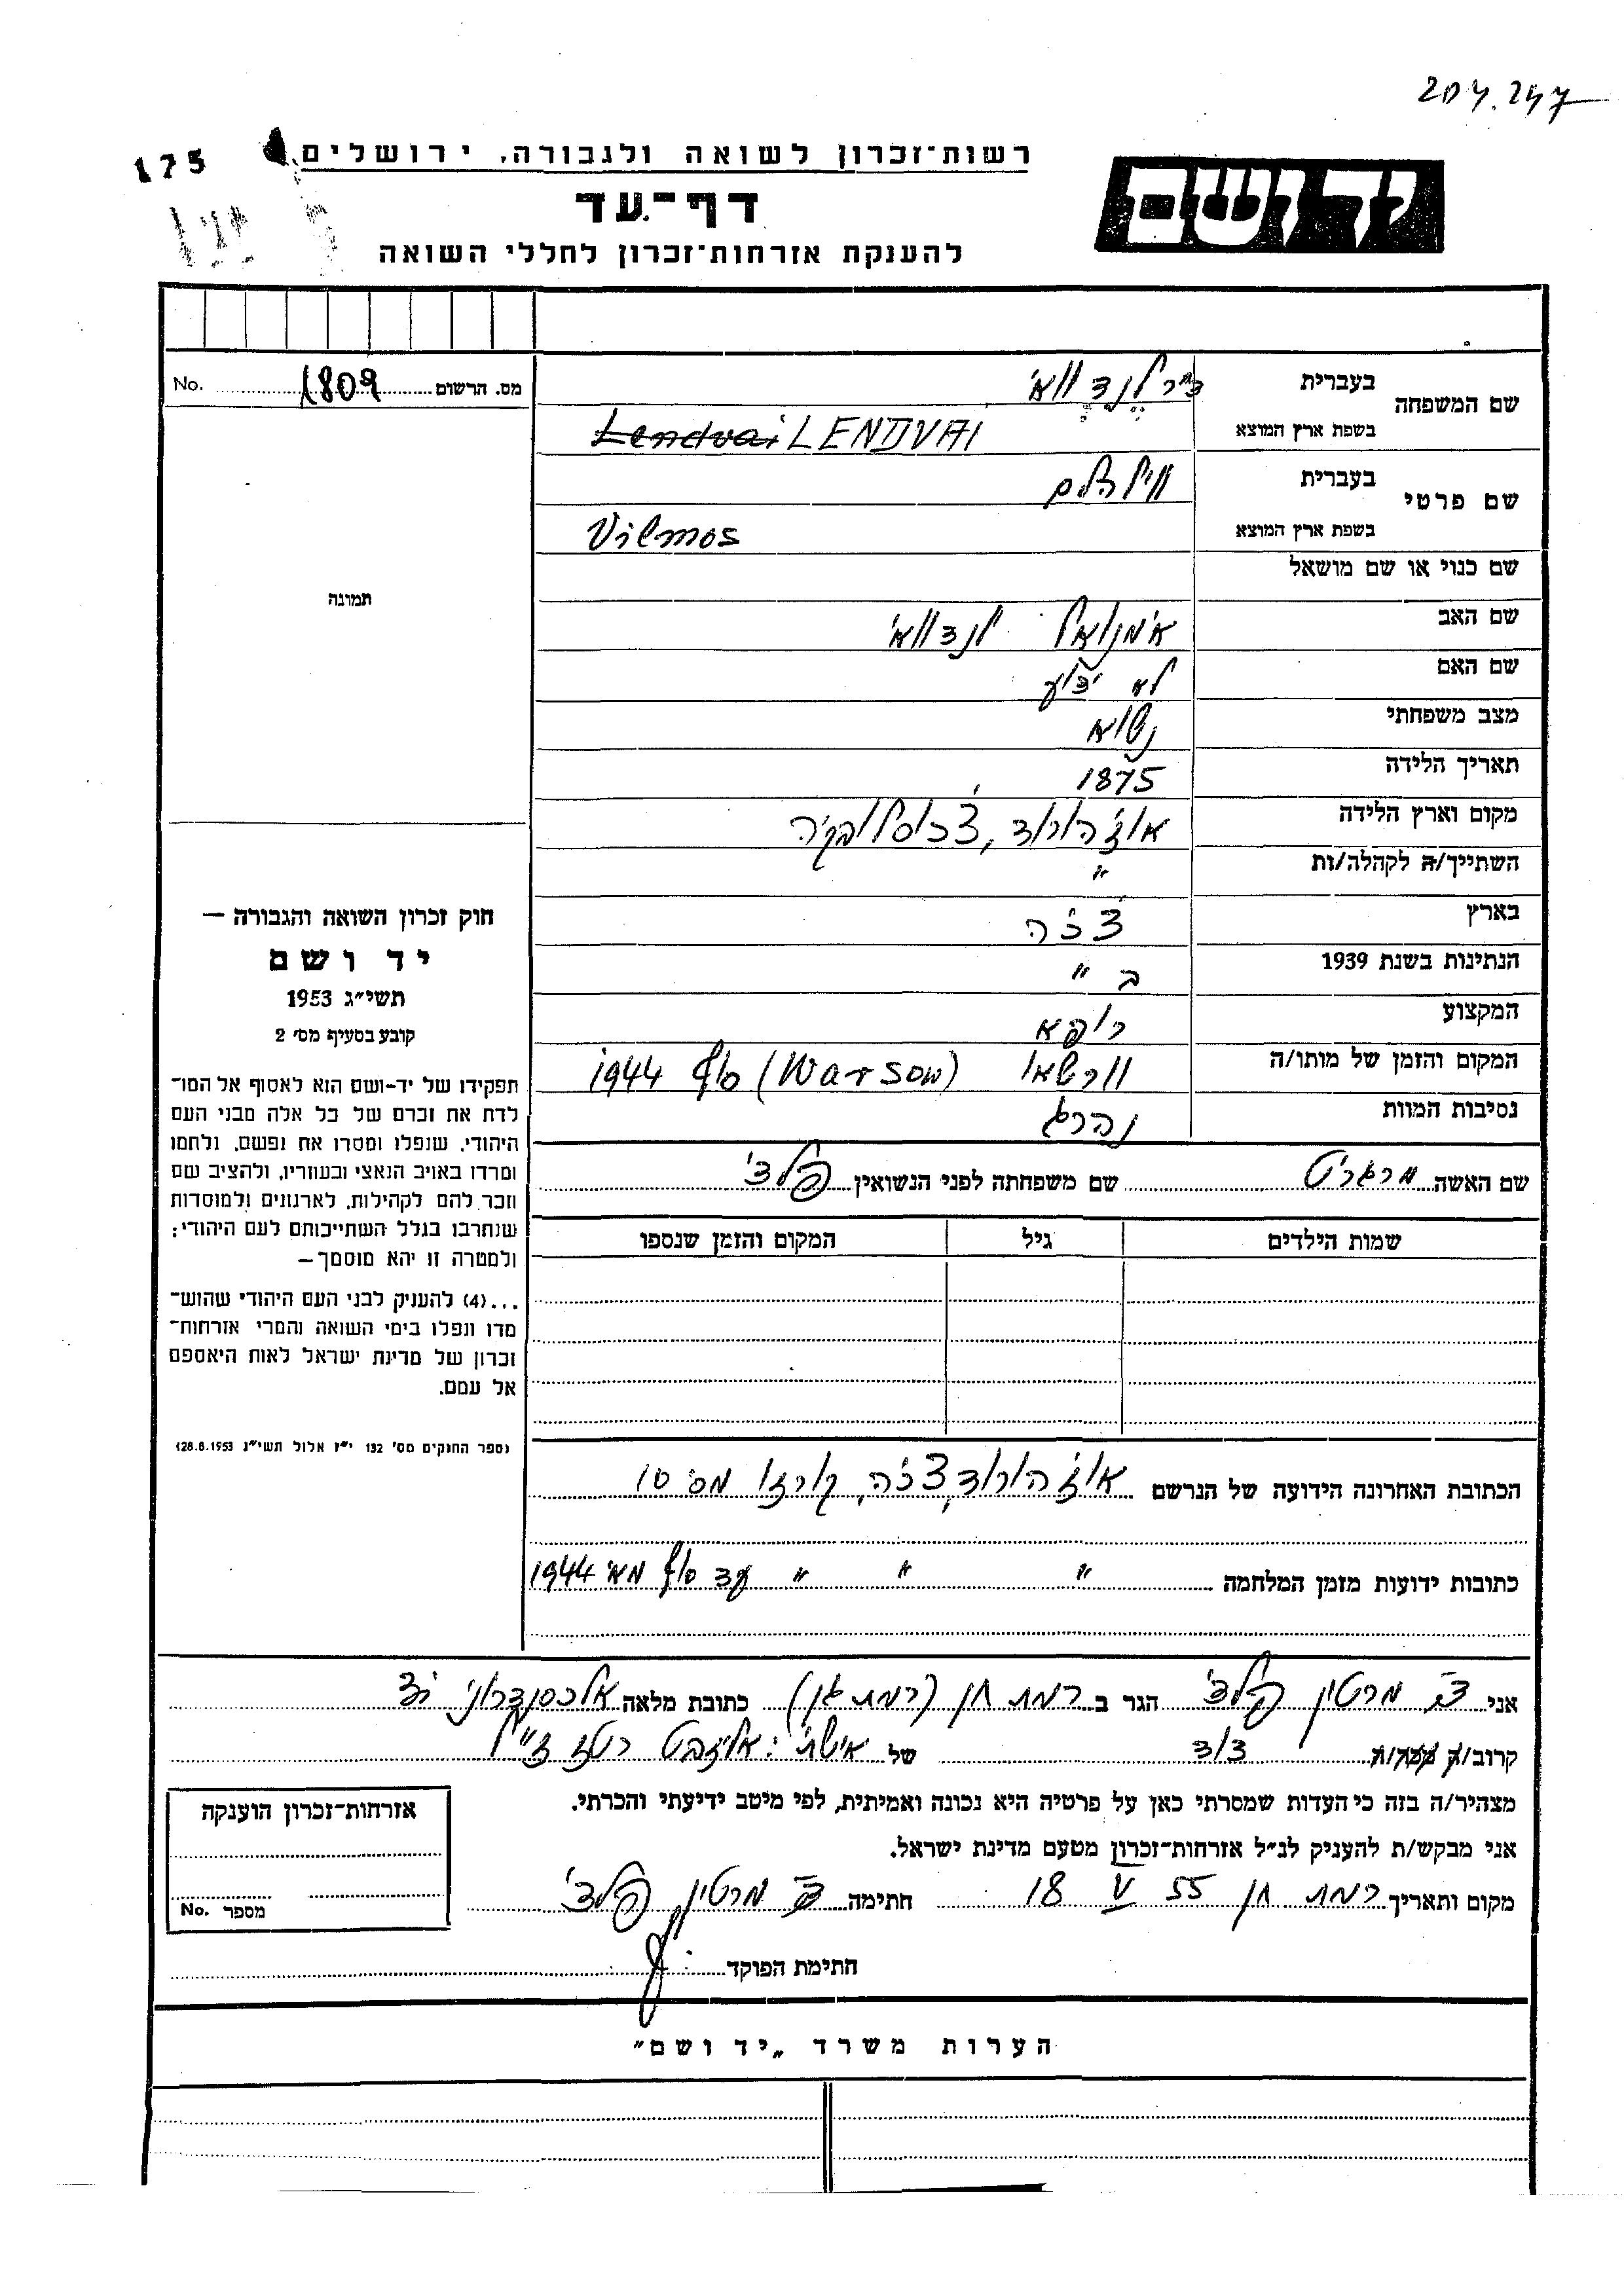 204.247
רשות־זכרון לשואה ולגבורה, ירושלים
175
יד ושם
דף־עד
להענקת אזרחות־זכרון לחללי השואה
שם המשפחה
בעברית ד"ר לנדוואי
בשפת ארץ המוצא Lendvai LENDVAI
מס. הרשום 1809 No.
שם פרטי
בעברית ווילהלם
בשפת ארץ המוצא Vilmos
שם כנוי או שם מושאל
תמונה
שם האב עמנואל לנדוואי
שם האם לא ידוע
מצב משפחתי נשוא
תאריך הלידה 1875
מקום וארץ הלידה אוז'הורוד, צ'כוסלובקיה
השתייך/ה לקהלה/ות "
בארץ צ'כיה
הנתינות בשנת 1939 ב "
המקצוע רופא
המקום והזמן של מותו/ה וורשאו (Warsow) סוף 1944
נסיבות המוות נהרג
שם האשה מרגריט שם משפחתה לפני הנשואין
שמות הילדים גיל המקום והזמן שנספו
חוק זכרון השואה והגבורה —
יד ושם
תשי״ג 1953
קובע בסעיף מס׳ 2
תפקידו של יד-ושם הוא לאסוף אל המו־
לדת את זכרם של כל אלה מבני העם
היהודי, שנפלו ומסרו את נפשם, נלחמו
ומרדו באויב הנאצי ובעוזריו, ולהציב שם
וזכר להם לקהילות, לארגונים ולמוסדות
שנחרבו בגלל השתייכותם לעם היהודי;
ולמטרה זו יהא מוסמך —
...(4) להעניק לבני העם היהודי שהוש־
מדו ונפלו בימי השואה והמרי אזרחות־
זכרון של מדינת ישראל לאות היאספם
אל עמם.
(ספר החוקים מס׳ 132 י״ז אלול תשי״ג 28.8.1953)
הכתובת האחרונה הידועה של הנרשם אוז'הורוד, צ'כיה, קורזו מס' 10
כתובות ידועות מזמן המלחמה " " " עד סוף מאי 1944
אני מרטין הגר ב רמת חן (רמת גן) כתובת מלאה אלכסנדרוני
קרוב/ה דוד של אישתי: אליזבט ז"ל
מצהיר/ה בזה כי העדות שמסרתי כאן על פרטיה היא נכונה ואמיתית, לפי מיטב ידיעתי והכרתי.
אני מבקש/ת להעניק לנ״ל אזרחות־זכרון מטעם מדינת ישראל.
מקום ותאריך רמת חן 18 V 55 חתימה מרטין
חתימת הפוקד
אזרחות־זכרון הוענקה
מספר No.
הערות משרד „יד ושם״